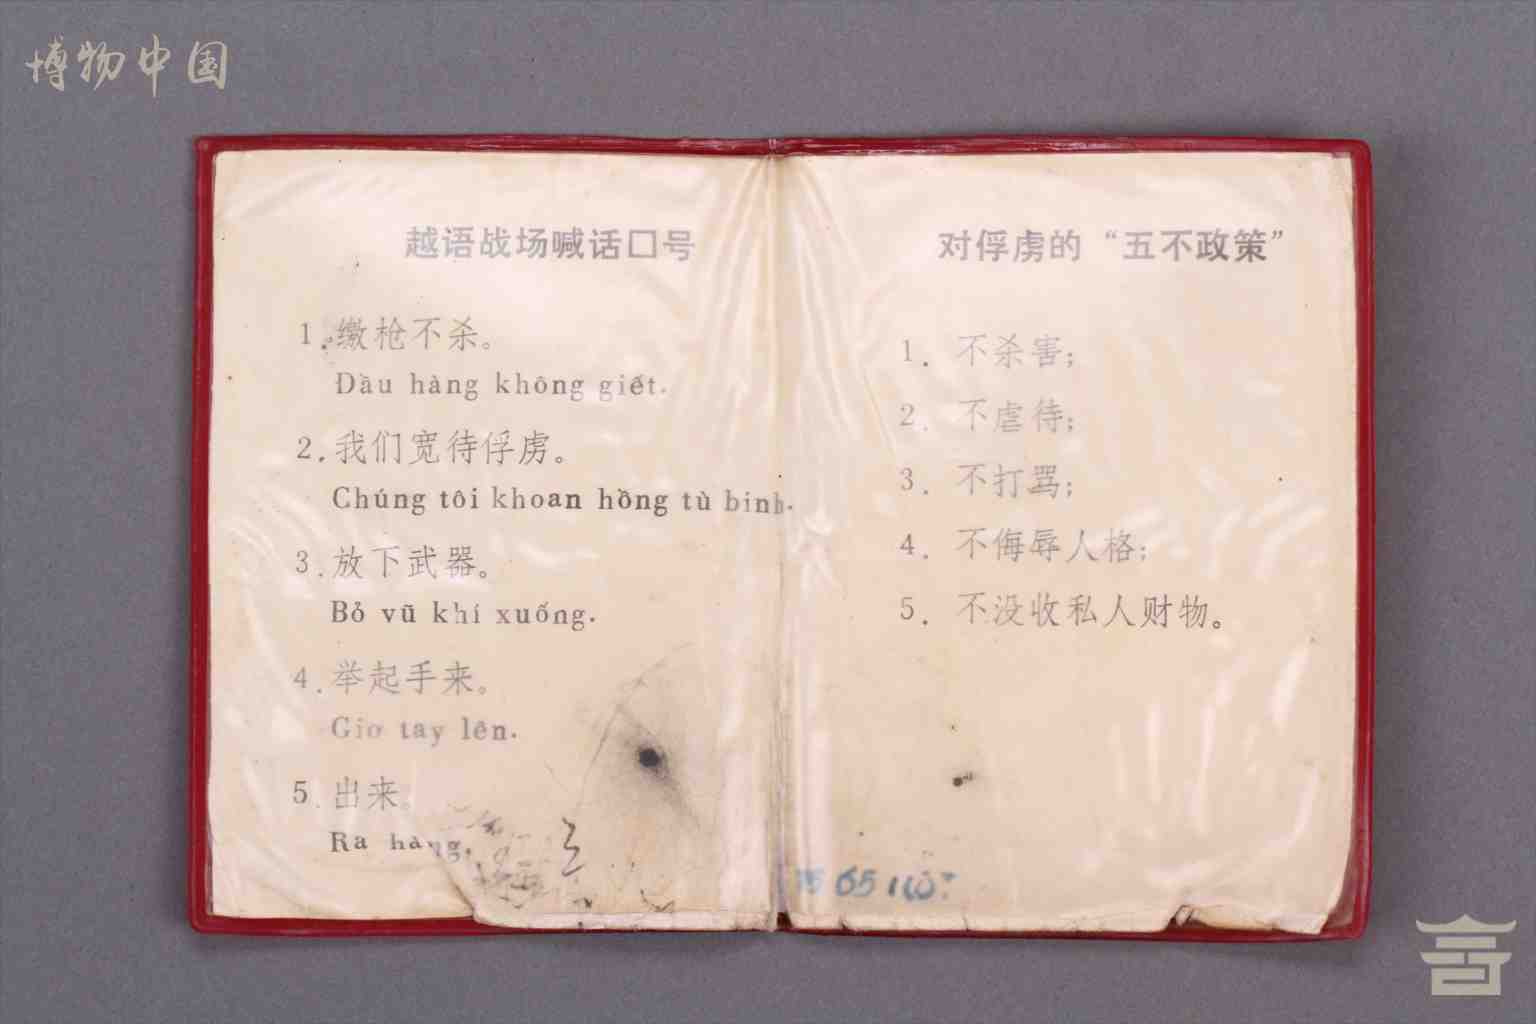 博物中国
越语战场喊话口号
1.缴枪不杀。
Đầu hàng không giết.
2.我们宽待俘虏。
Chúng tôi khoan hồng tù binh.
3.放下武器。
Bỏ vũ khí xuống.
4.举起手来。
Giơ tay lên.
5.出来。
Ra hàng.
对俘虏的“五不政策”
1. 不杀害;
2. 不虐待;
3. 不打骂;
4. 不侮辱人格;
5. 不没收私人财物。